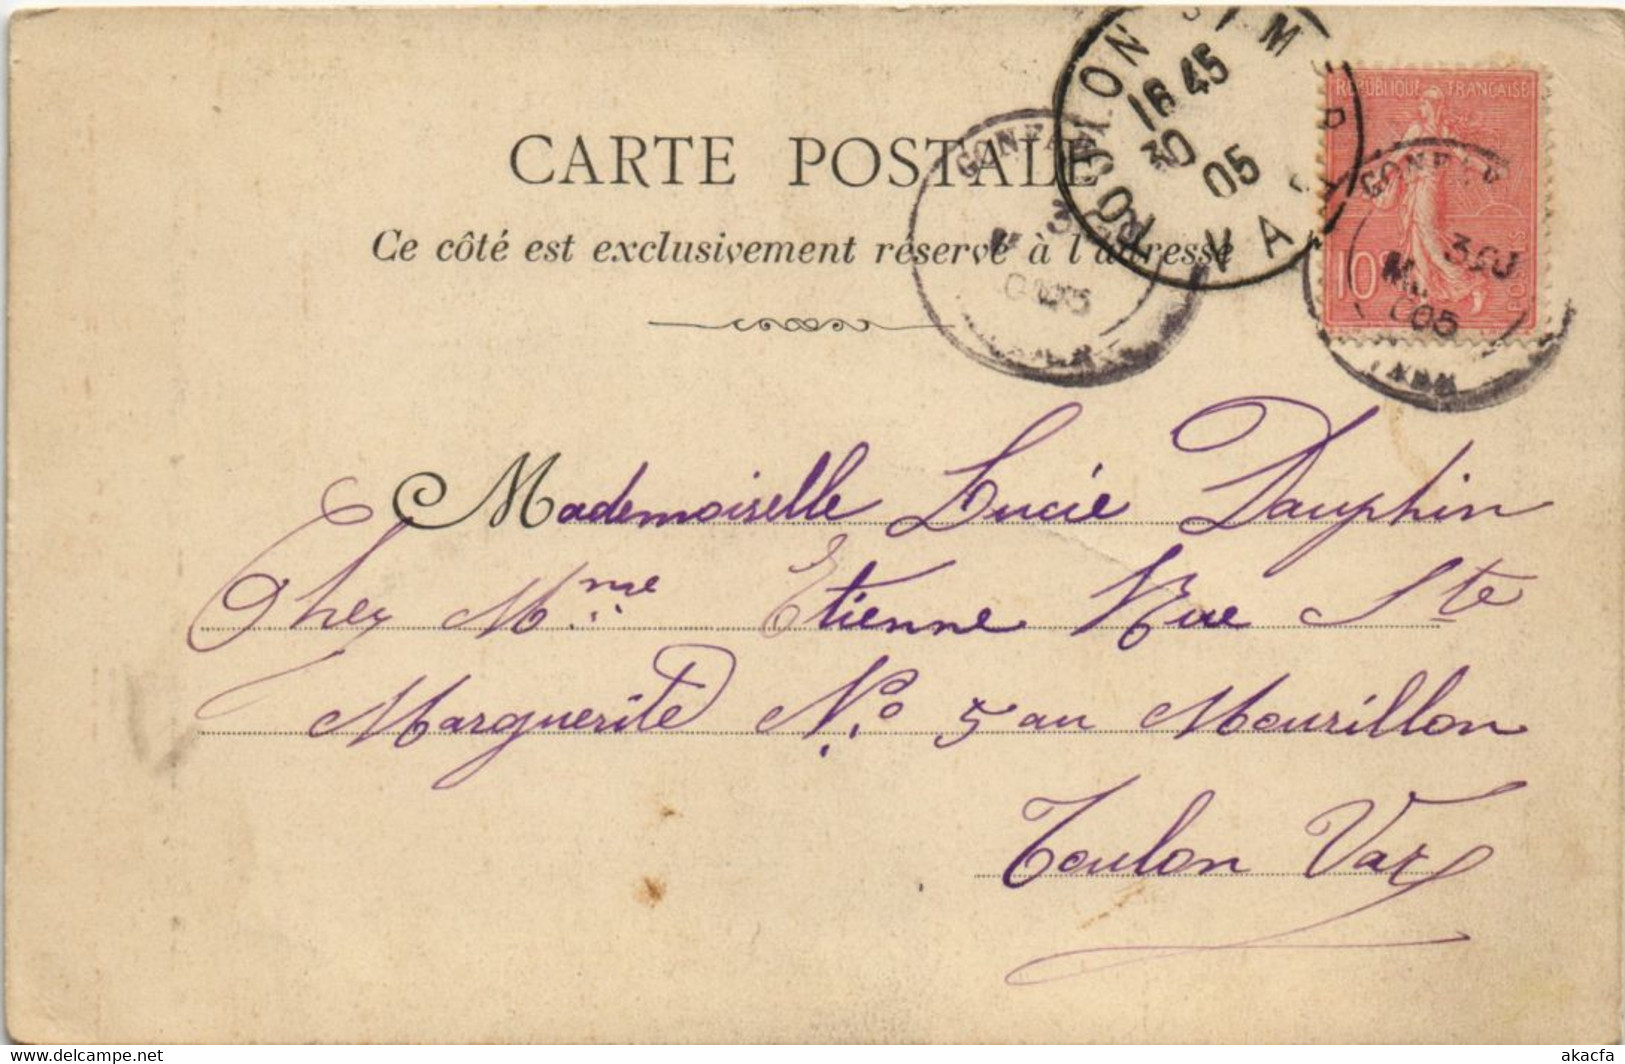 CARTE POSTALE
Ce côté est exclusivement réservé à l'adresse
RÉPUBLIQUE FRANÇAISE
10
POSTES
16 45
30
05
VAR
GONFA
05
GONF
30
05
Mademoiselle Lucie Dauphin
Chez Mme Etienne Rue Ste
Marguerite No 5 au Mourillon
Toulon Var
delcampe.net
akacfa